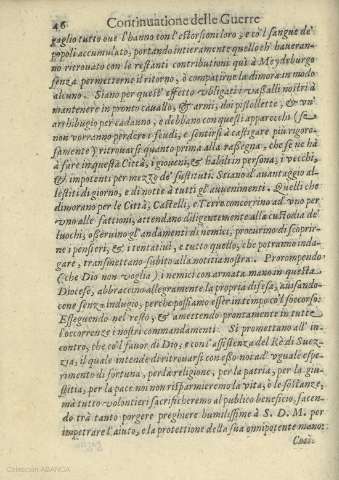 46 Continuatione delle Guerre
gaglio tutto oue l'hanno con l'estorsioni loro, e co'l sangue de'
popoli accumulato, portando intieramente quello ch' haueran-
no ritrouato con le restanti contributioni quì à Meydeburgo
senza permetterne il ritorno, ò compatirne la dimora in modo
alcuno. Siano per quest' effetto obligati i vasalli nostri à
mantenere in pronto cauallo, & armi, doi pistollette, & vn'
archibugio per cadauno, e debbano con questi apparecchi (se
non vorranno perdere i feudi, e sentirsi à castigare più rigoro-
samente) ritrouarsi quanto prima alla rassegna, che se ne hà
à fare in questa Città, i gioueni, & habili in persona; i vecchi,
& impotenti per mezzo de' sustituti. Stiano d'auantaggio al-
lestiti di giorno, e di notte à tutti gl' auuenimenti. Quelli che
dimorano per le Città, Castelli, e Terre concorrino ad vno per
vno alle fattioni, attendano diligentemente alla custodia de'
fuochi, osseruino gl'andamenti di nemici, procurino di scoprir-
ne i pensieri, & i tentatiui, e tutto quello, che potranno inda-
gare, transmettano subito alla notitia nostra. Prorompendo
(che Dio non voglia) i nemici con armata mano in questa
Diocese, abbraccino allegramente la propria difesa, auisando-
cene senza indugio, perche possiamo esser in tempo co'l soccorso:
Esseguendo nel resto, & amettendo prontamente in tutte
l'occorrenze i nostri commandamenti. Si promettano all' in-
contro, che co'l fauor di Dio, e con l'assistenza del Rè di Suez-
zia, il quale intende di ritrouarsi con esso noi ad vguale espe-
rimento di fortuna, per la religione, per la patria, per la giu-
stitia, per la pace noi non risparmieremo la vita, ò le sostanze,
mà tutto volontieri sacrificheremo al publico beneficio, facen-
do trà tanto porgere preghiere humilissime à S. D. M. per
impetrare l'aiuto, e la protettione della sua onnipotente mano:
Così
Colección ABANCA